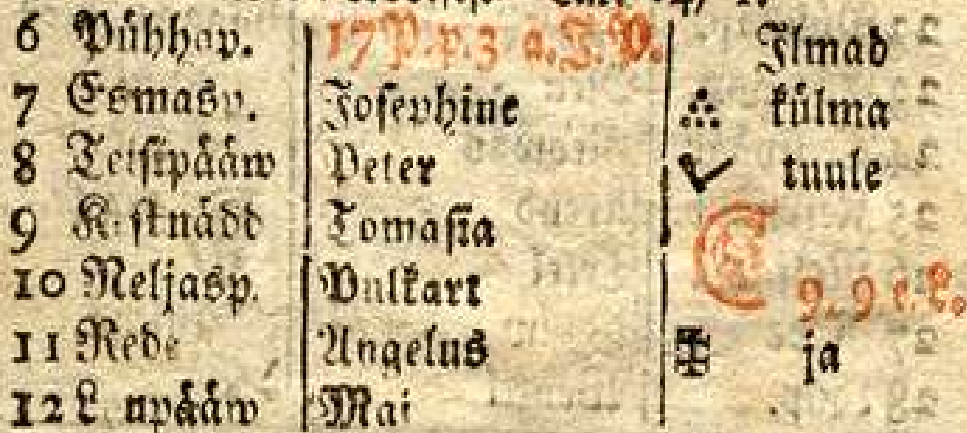 6 Pühhap. 17 P. p. 3 a. J. P. Ilmad
7 Esmasp. Josephine külma
8 Teisipääw Peter tuule
9 Kestnädd Tomasia
10 Neljasp. Vulkart 9. 9 e. L.
11 Rede Angelus ja
12 Laupääw Mai